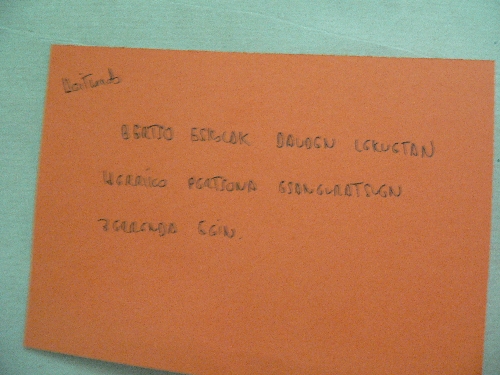 BERTSO ESKOLAK DAUDEN LEKUETAN
HERRIKO PERTSONA ESANGURATSUEN
ZERRENDA EGIN.